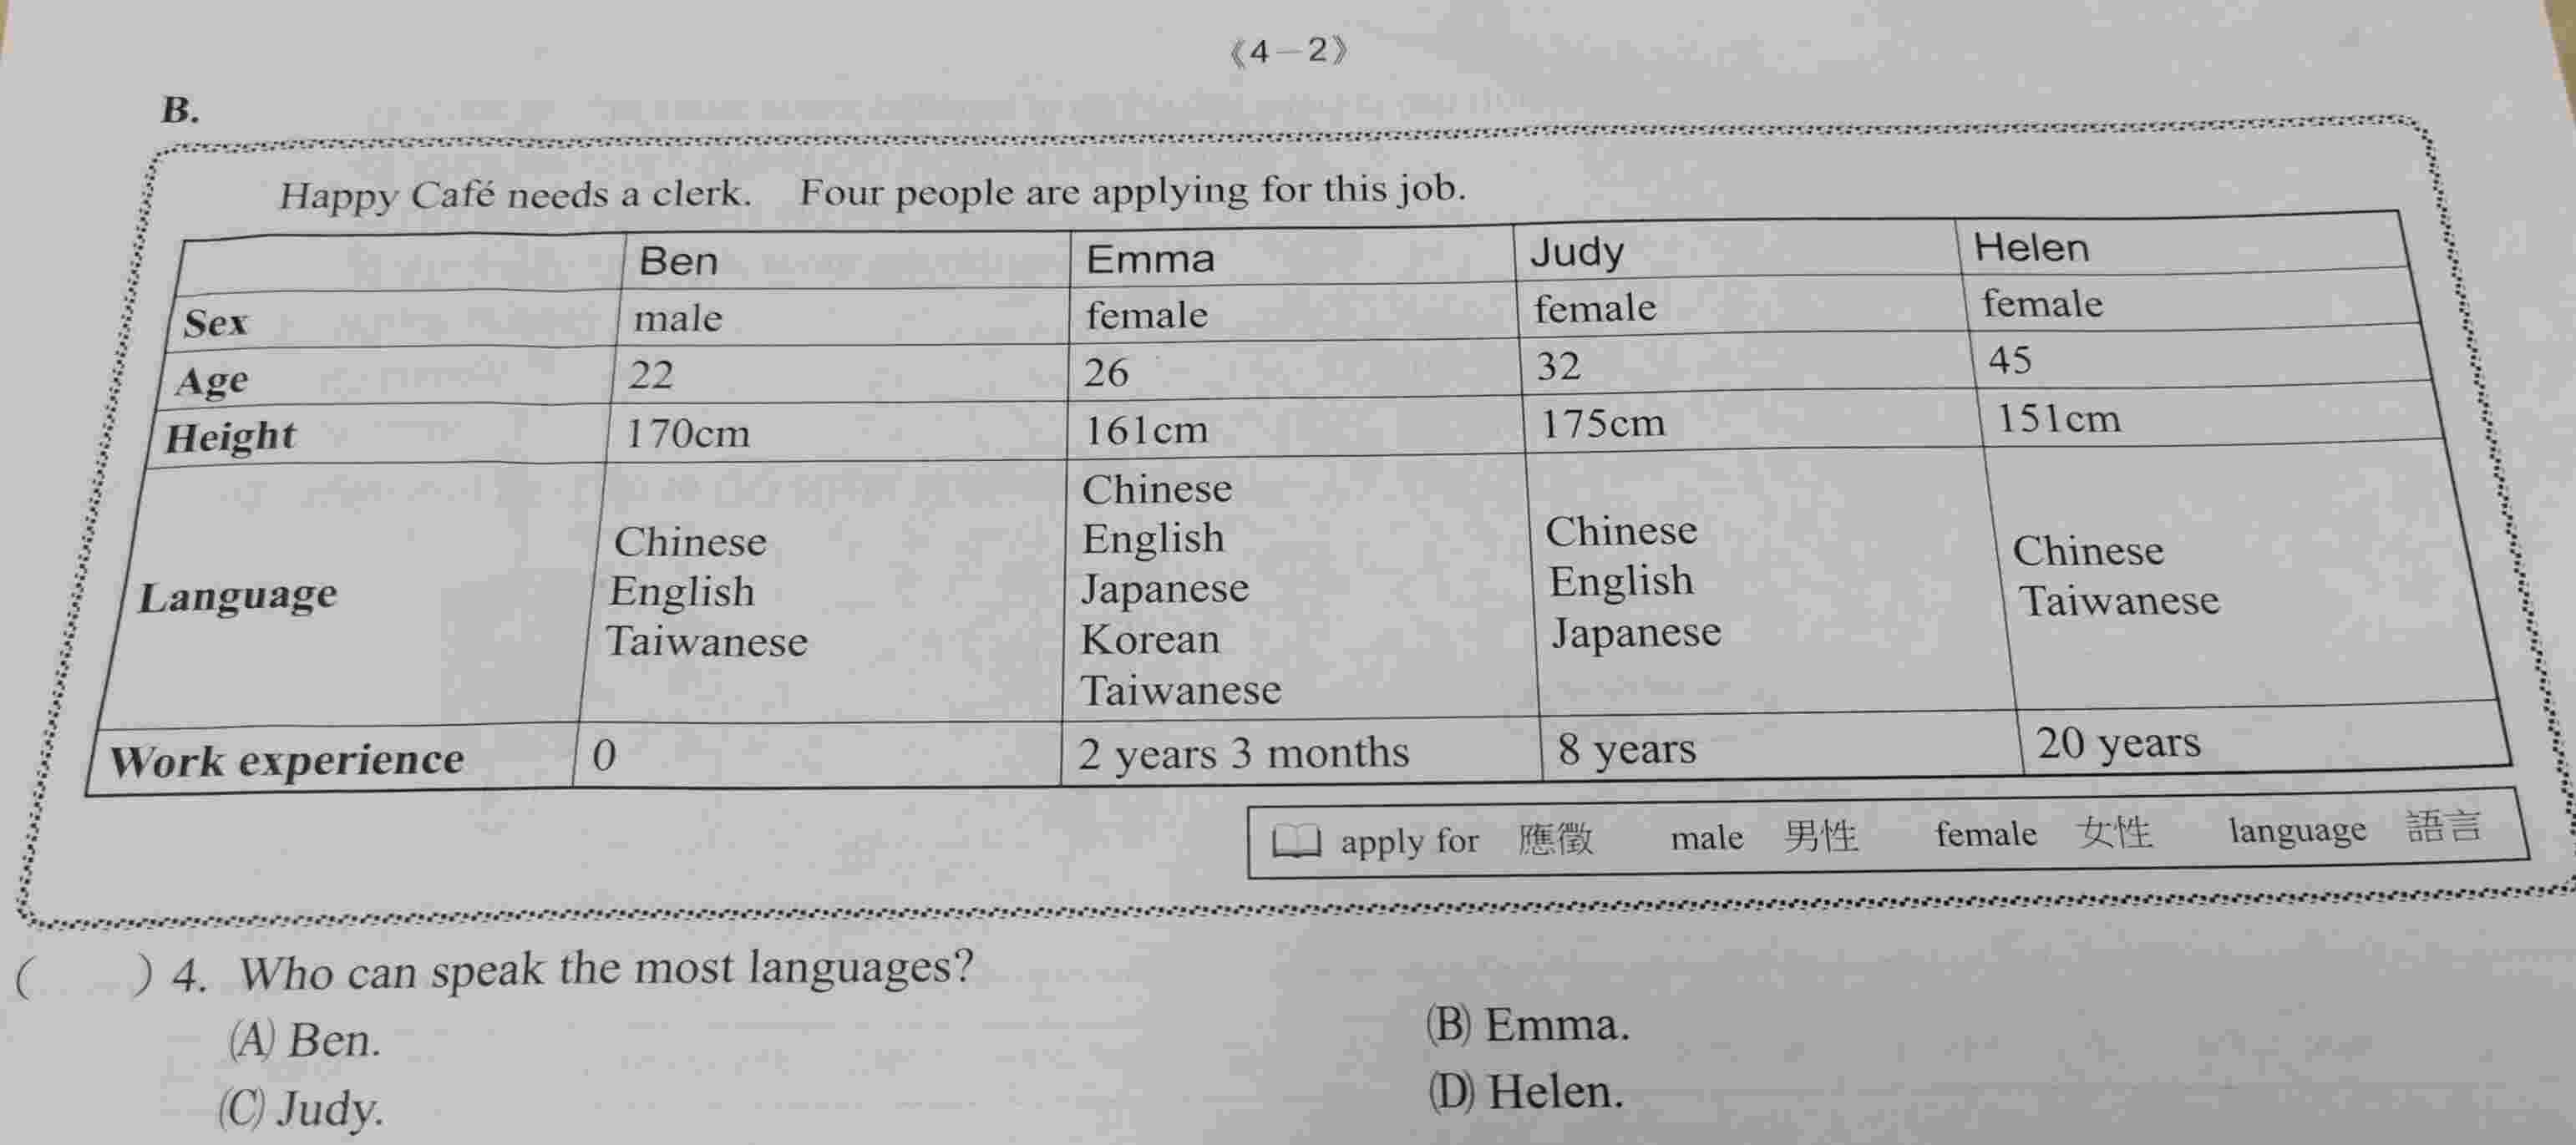 《4-2》
B.
Happy Café needs a clerk. Four people are applying for this job.
Ben Emma Judy Helen
Sex male female female female
Age 22 26 32 45
Height 170cm 161cm 175cm 151cm
Language
Chinese
English
Taiwanese
Chinese
English
Japanese
Korean
Taiwanese
Chinese
English
Japanese
Chinese
Taiwanese
Work experience 0 2 years 3 months 8 years 20 years
apply for 應徵 male 男性 female 女性 language 語言
( ) 4. Who can speak the most languages?
(A) Ben. (B) Emma.
(C) Judy. (D) Helen.